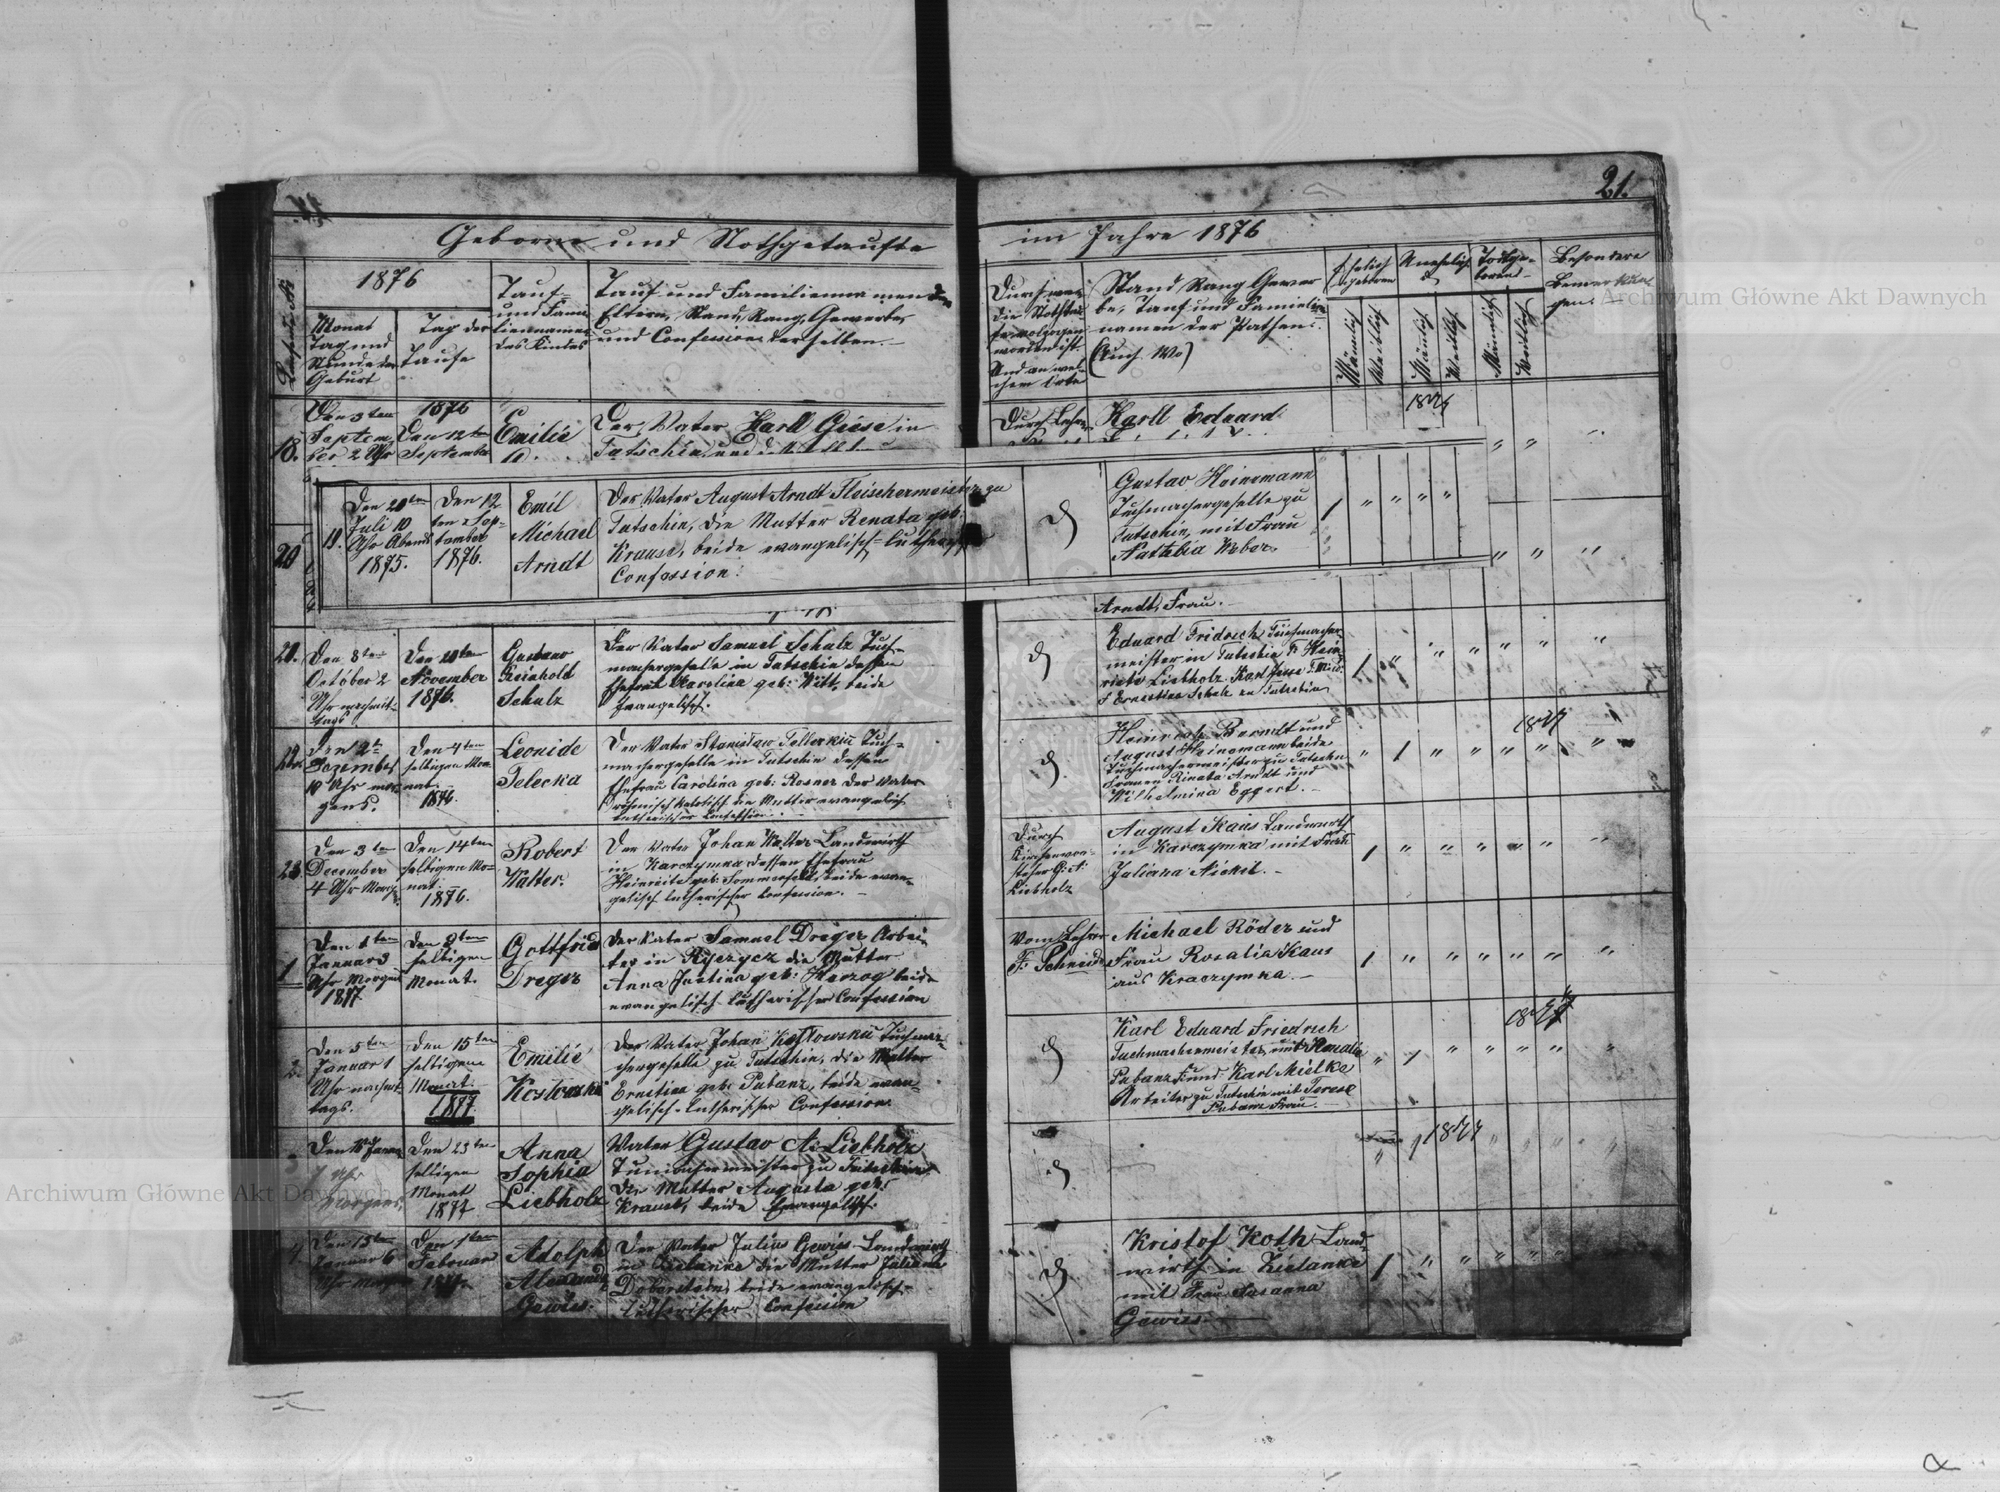 21.
Geborne und Nothgetaufte
im Jahre 1876
1876
Monat
Tag und
Stunde der
Geburt
Tag der
Taufe
Tauf-
und Fami-
liennamen
des Kindes
Tauf und Familiennamen der
Eltern, Stand, Rang, Gewerbe,
und Confession derselben.
Durch wen
die Nothtau-
fe volzogen
worden ist.
Und an wel-
chem Orte
Stand Rang Gewer
be, Tauf und Familien
namen der Pathen.
(Auch Wo)
Ehelich
geboren
Unehelich
Todtge-
boren
Männlich
Weiblich
Männlich
Weiblich
Männlich
Weiblich
Besondere
Bemerkun
gen.
18.
Den 9ten
Septem
ber 2 Uhr
1876
Den 12ten
September
Emilie
Der Vater Karll Giese in
Tutschin, und
Durch Lehr
Karll Eduard
19.
Den 20ten
Juli 10
Uhr Abends
1875.
Den 12
ten Sep-
tember
1876.
Emil
Michael
Arndt
Der Vater August Arndt Fleischermeister zu
Tutschin, die Mutter Renata geb:
Krause, beide evangelisch-lutherisch
Confession.
Gustav Heinemann
Tuchmachergeselle zu
Tutschin, mit Frau
Nathalia Weber
20
Arndt, Frau.
21.
Den 8ten
October 2
Uhr nachmit-
tags
Den 10ten
November
1876.
Gustaw
Reinhold
Schulz
Der Vater Samuel Schulz Tuch-
machergeselle in Tutschin dessen
Ehefrau Karolina geb: Witt, beide
Evangelisch.
Eduard Fridrich Tuchmacher
meister in Tutschin
Liebholz Karl
Ernestine Schulz zu Tutschin
Den 2ten
Dezember
10 Uhr mor-
gens.
Den 4ten
selbigen Mo-
nat.
1876.
Leonide
Telecka
Der Vater Stanislaw Tellerkin Tuch-
machergeselle in Tutschin dessen
Ehefrau Carolina geb: Rosner der Vater
römisch katolisch die Mutter evangelisch
lutherischer Confession.
Heinrich Berndt und
August Heinemann beide
Tuchmachermeister zu Tutschin
Frauen Rinata Arndt und
Wilhelmina Eggert.
23.
Den 3ten
December
4 Uhr Morg
Den 14ten
selbigen Mo-
nat
1876.
Robert
Walter.
Der Vater Johan Walter Landwirth
in Karczymka dessen Ehefrau
Heinreite geb: Sommerfeld beide evan-
gelisch lutherischer Confession.
Durch
Kirchenvor-
steher G: A:
Liebholz
August Kaus Landwirth
in Karczymka mit Frau
Juliana Nickel.
1
Den 1ten
Januar 3
Uhr Morgens
1877
Den 8ten
selbigen
Monat.
Gottfried
Dreger
Der Vater Samuel Dreger Arbei-
ter in Ryczycz die Mutter
Anna Justina geb: Herzog beide
evangelisch-lutherischer Confession
Vom Lehrer
F: Schneider
Michael Röder und
Frau Rosalia Kaus
aus Kraczymka.
2.
Den 5ten
Januar 1
Uhr nachmit-
tags.
Den 15ten
selbigen
Monat.
1877.
Emilie
Koslowski
Der Vater Johan Koslowski Tuchma-
chergeselle zu Tutschin, die Mutter
Ernstine geb: Pubanz, beide evan-
gelisch-lutherischer Confession.
Karl Eduard Friedrich
Tuchmachermeister, mit Rosalia
Pubanz F: und Karl Mielke
Arbeiter zu Tutschin mit Terese
Pubanz Frau.
3
Den 10 Januar
Uhr
Morgens
Den 23ten
selbigen
Monat
1877
Anna
Sophia
Liebholz
Vater Gustav A: Liebholz
Tuchmachermeister zu Tutschin
Die Mutter Augusta geb:
Krause, beide Evangelisch.
4.
Den 13ten
Januar 6
Uhr Morgens
Den 1ten
Februar
1877.
Adolph
Alexander
Gewiss.
Der Vater Julius Gewiss Landwirth
in Zielanke die Mutter Juliana
Doberstein, beide evangelisch-
lutherischer Confession
Kristof Koth Land-
wirth in Zielanke
mit Frau Susanna
Gewiss
Archiwum Główne Akt Dawnych
Archiwum Główne Akt Dawnych